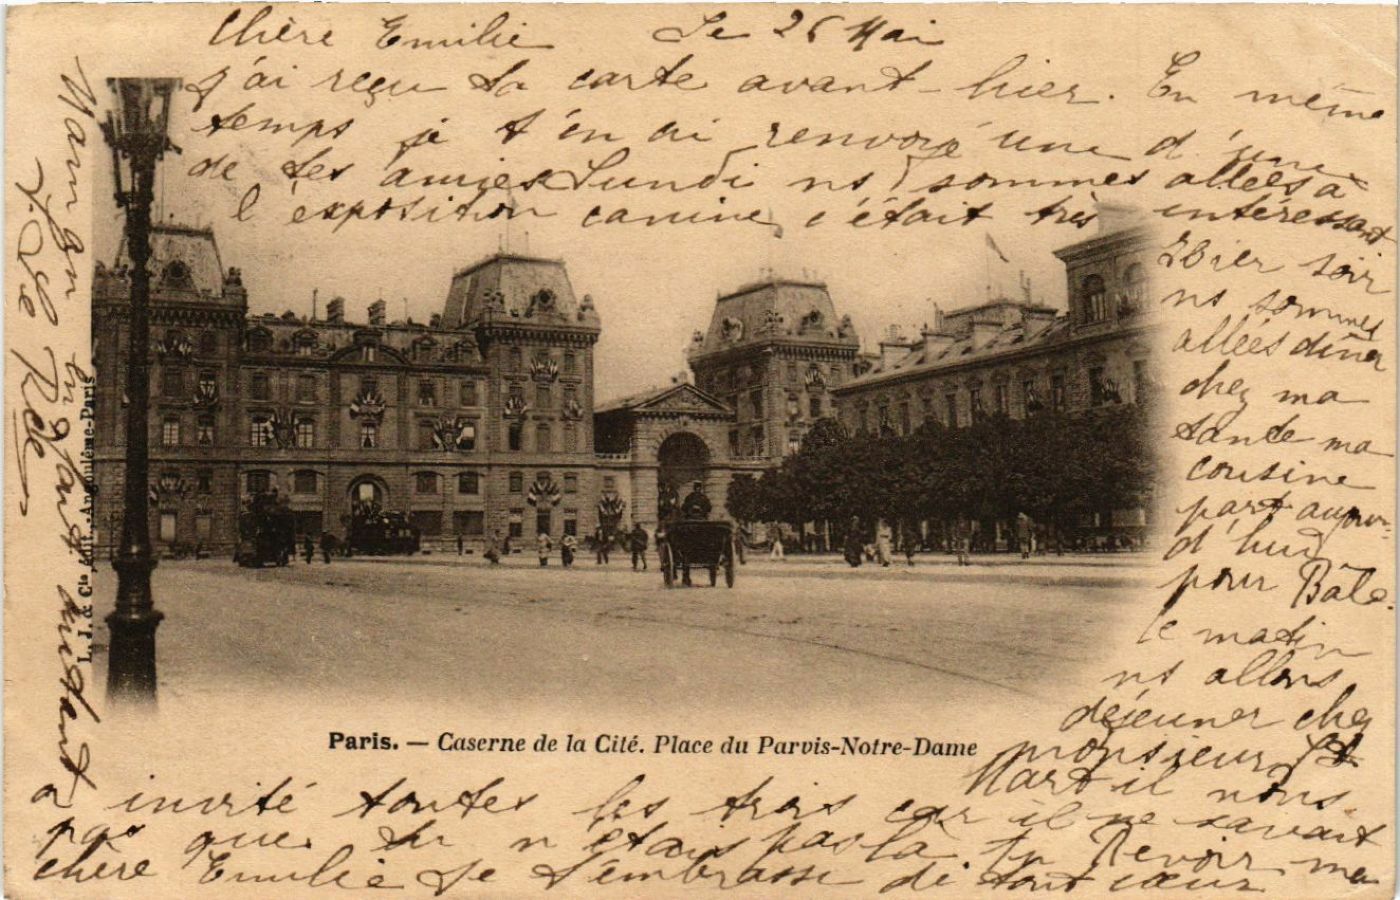 Chère Emilie Le 26 Mai
j'ai reçu ta carte avant-hier. En même
temps je t'en ai renvoyé une d'une
de tes amies Lundi ns sommes allées à
l'exposition canine c'était très intéressant
Hier soir
ns sommes
allées dîner
chez ma
tante ma
cousine
part aujour-
d'hui
pour Bâle.
le matin
ns allons
déjeuner chez
monsieur St
Mart il nous
a invité toutes les trois car il ne savait
pas que tu n'étais pas là. Au Revoir ma
chère Emilie Je t'embrasse de tout cœur
Paris. — Caserne de la Cité. Place du Parvis-Notre-Dame
L. J. & Cie, édit., Angoulême-Paris